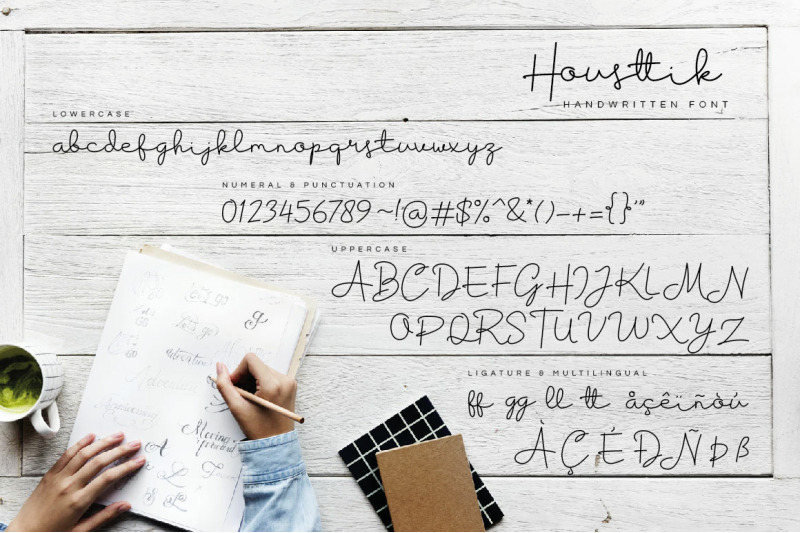 Housttik
HANDWRITTEN FONT
LOWERCASE
abcdefghijklmnopqrstuvwxyz
NUMERAL & PUNCTUATION
0123456789~!@#$%^&*()-+={}'"
UPPERCASE
ABCDEFGHIJKLMN
OPQRSTUVWXYZ
LIGATURE & MULTILINGUAL
ff gg ll tt åçêïñòú
ÀÇÉÐÑÞß
Let's go
Let's go
g
Adventure
Moving
forward
A
L